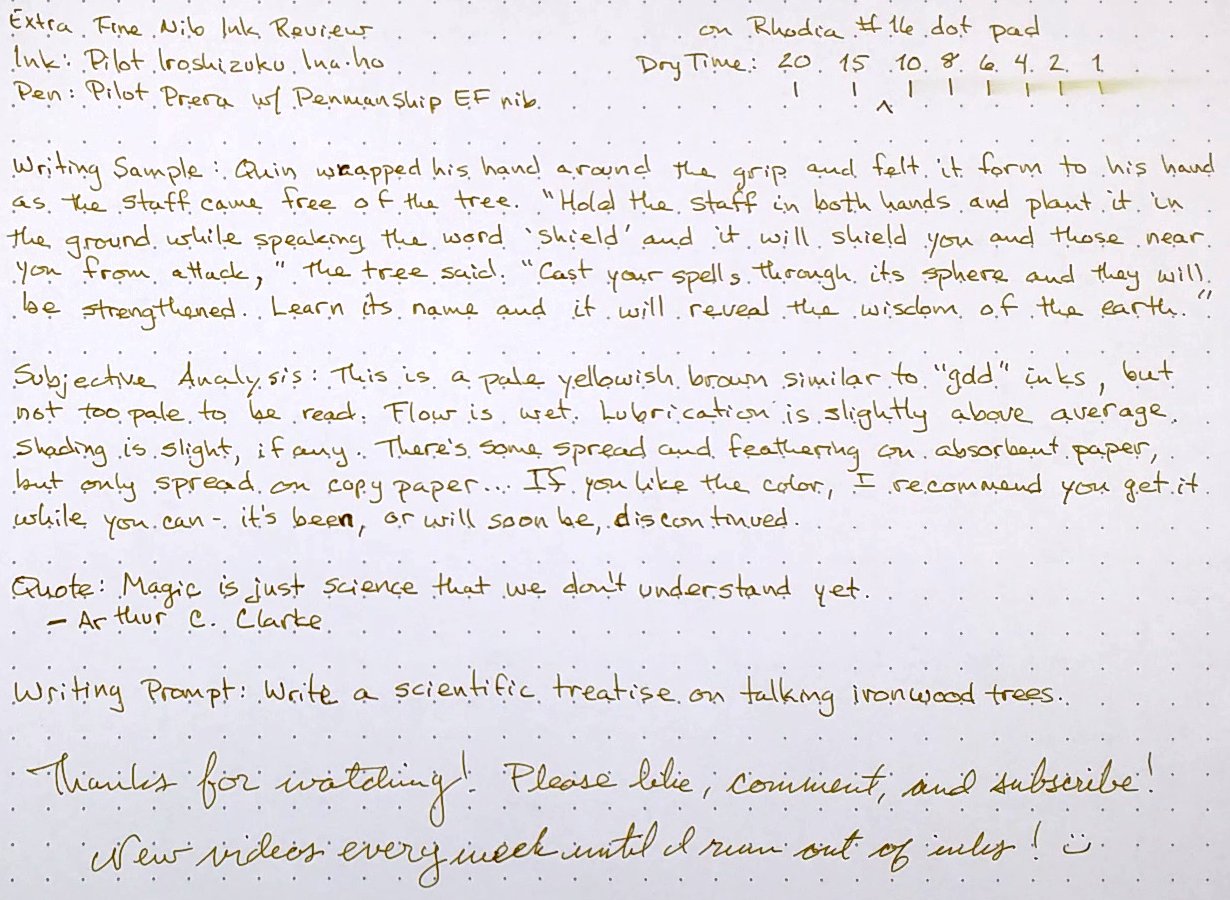 Extra Fine Nib Ink Review on Rhodia #16 dot pad
Ink: Pilot Iroshizuku Ina-ho Dry Time: 20 15 10 8 6 4 2 1
Pen: Pilot Prera w/ Penmanship EF nib ^
Writing Sample: Quin wrapped his hand around the grip and felt it form to his hand
as the staff came free of the tree. "Hold the staff in both hands and plant it in
the ground while speaking the word 'shield' and it will shield you and those near
you from attack," the tree said. "Cast your spells through its sphere and they will
be strengthened. Learn its name and it will reveal the wisdom of the earth."
Subjective Analysis: This is a pale yellowish brown similar to "gold" inks, but
not too pale to be read. Flow is wet. Lubrication is slightly above average.
Shading is slight, if any. There's some spread and feathering on absorbent paper,
but only spread on copy paper... If you like the color, I recommend you get it
while you can - it's been, or will soon be, discontinued.
Quote: Magic is just science that we don't understand yet.
- Arthur C. Clarke
Writing Prompt: Write a scientific treatise on talking ironwood trees.
Thanks for watching! Please like, comment, and subscribe!
New videos every week until I run out of inks! :)